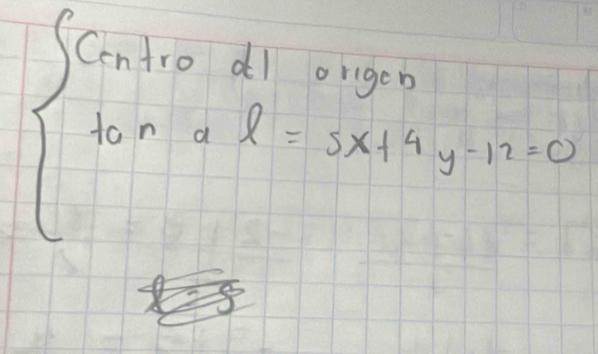 Centro dl origen
tan a l = 5x+4y-12=0